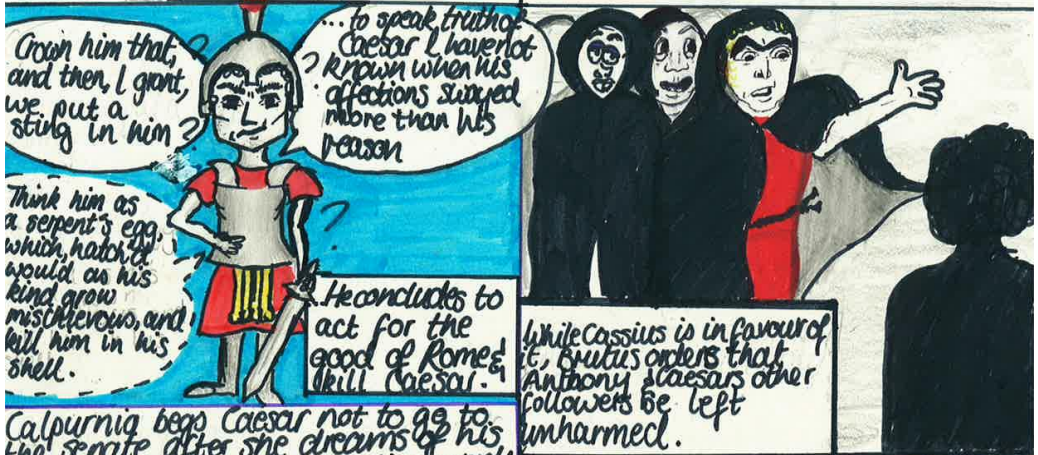 Crown him that,
and then, I grant,
we put a
sting in him ?
... to speak truth of
Caesar I have not
known when his
affections swayed
more than his
reason
Think him as
a serpent's egg,
which, hatch'd
would as his
kind grow
mischievous, and
kill him in his
shell.
He concludes to
act for the
good of Rome &
kill Caesar.
While Cassius is in favour of
it, Brutus orders that
Anthony & Caesars other
followers be left
unharmed.
Calpurnia begs Caesar not to go to
the senate after she dreams of his